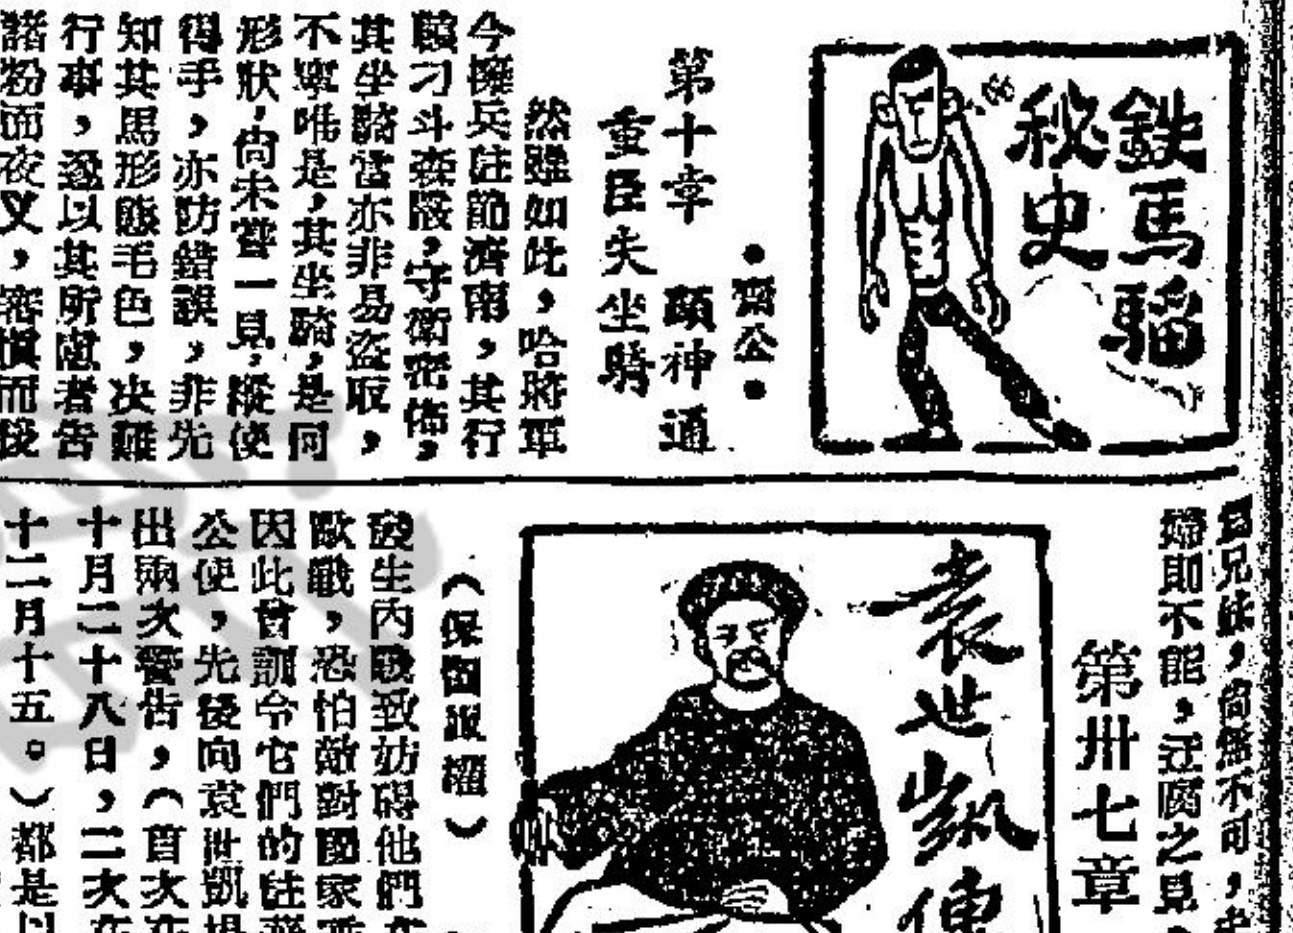 鉄馬騮
秘史
●齋公●
第十章　顯神通
重臣失坐騎
然雖如此，哈將軍
今擁兵駐節濟南，其行
轅刁斗森嚴，守衛密佈，
其坐騎當亦非易盜取，
不寧唯是，其坐騎，是何
形狀，尙未聱一見，縱使
得手，亦防錯誤，非先
知其馬形態毛色，决難
行事，遂以其所慮者告
諸粉面夜叉，
兄妹，尙無不可，
婦則不能，迂腐之見，
第卅七章
袁世凱傳
（保留版權）
發生內戰致妨碍他們在
歐戰，恐怕敵對國家
因此曾訓令它們的駐
公使，先後向袁世凱提
出兩次警告，（首次在
十月二十八日，二次在
十二月十五。）都是以